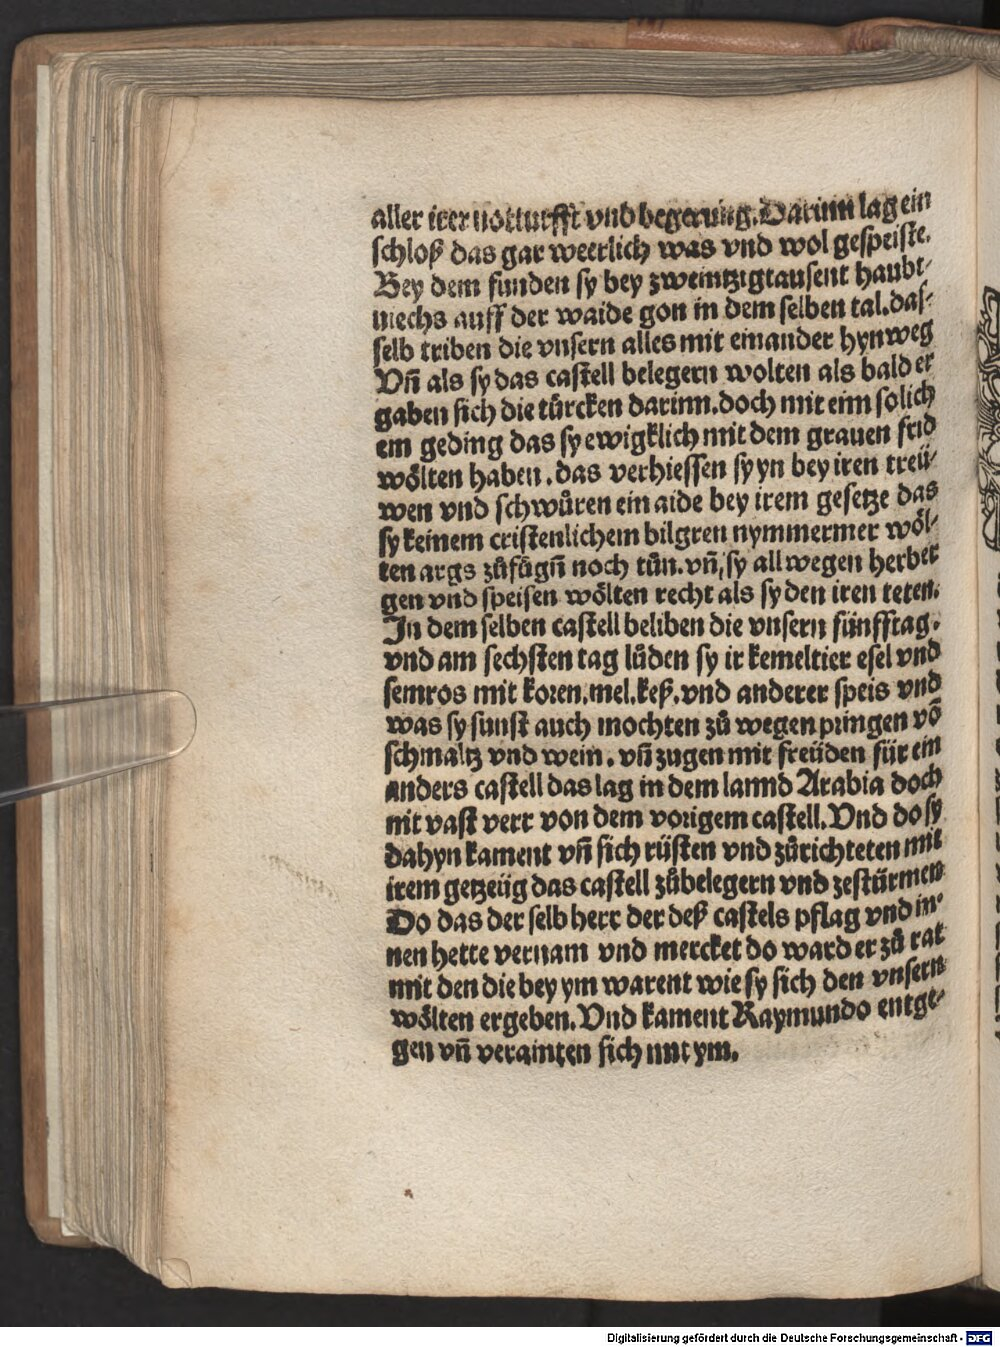 aller irer notturfft vnd begerung. Darinn lag ein
schloß das gar weerlich was vnd wol gespeiste.
Bey dem funden sy bey zweintzigtausent haubt⸗
viechs auff der waide gon in dem selben tal. das⸗
selb triben die vnsern alles mit einander hynweg
Vn̄ als sy das castell belegern wolten als bald er
gaben sich die türcken darinn. doch mit eim solich
em geding das sy ewigklich mit dem grauen frid
wölten haben. das verhiessen sy yn bey iren treü⸗
wen vnd schwůren ein aide bey irem gesetze das
sy keinem cristenlichem bilgren nymmermer wöl⸗
ten args zůfügn̄ noch tůn. vn̄ sy allwegen herber
gen vnd speisen wölten recht als sy den iren teten.
In dem selben castell beliben die vnsern fünfftag.
vnd am sechsten tag lůden sy ir kemeltier esel vnd
semros mit koren. mel. keß. vnd anderer speis vnd
was sy sunst auch mochten zů wegen pringen vō
schmaltz vnd wein. vn̄ zugen mit freüden für ein
anders castell das lag in dem lannd Arabia doch
nit vast verr von dem vorigem castell. Vnd do sy
dahyn kament vn̄ sich rüsten vnd zůrichteten mit
irem getzeüg das castell zůbelegern vnd zestürmen
Do das der selb herr der deß castels pflag vnd in⸗
nen hette vernam vnd mercket do ward er zů rat
mit den die bey ym warent wie sy sich den vnsern
wölten ergeben. Vnd kament Raymundo entge⸗
gen vn̄ verainten sich mit ym.
Digitalisierung gefördert durch die Deutsche Forschungsgemeinschaft - DFG